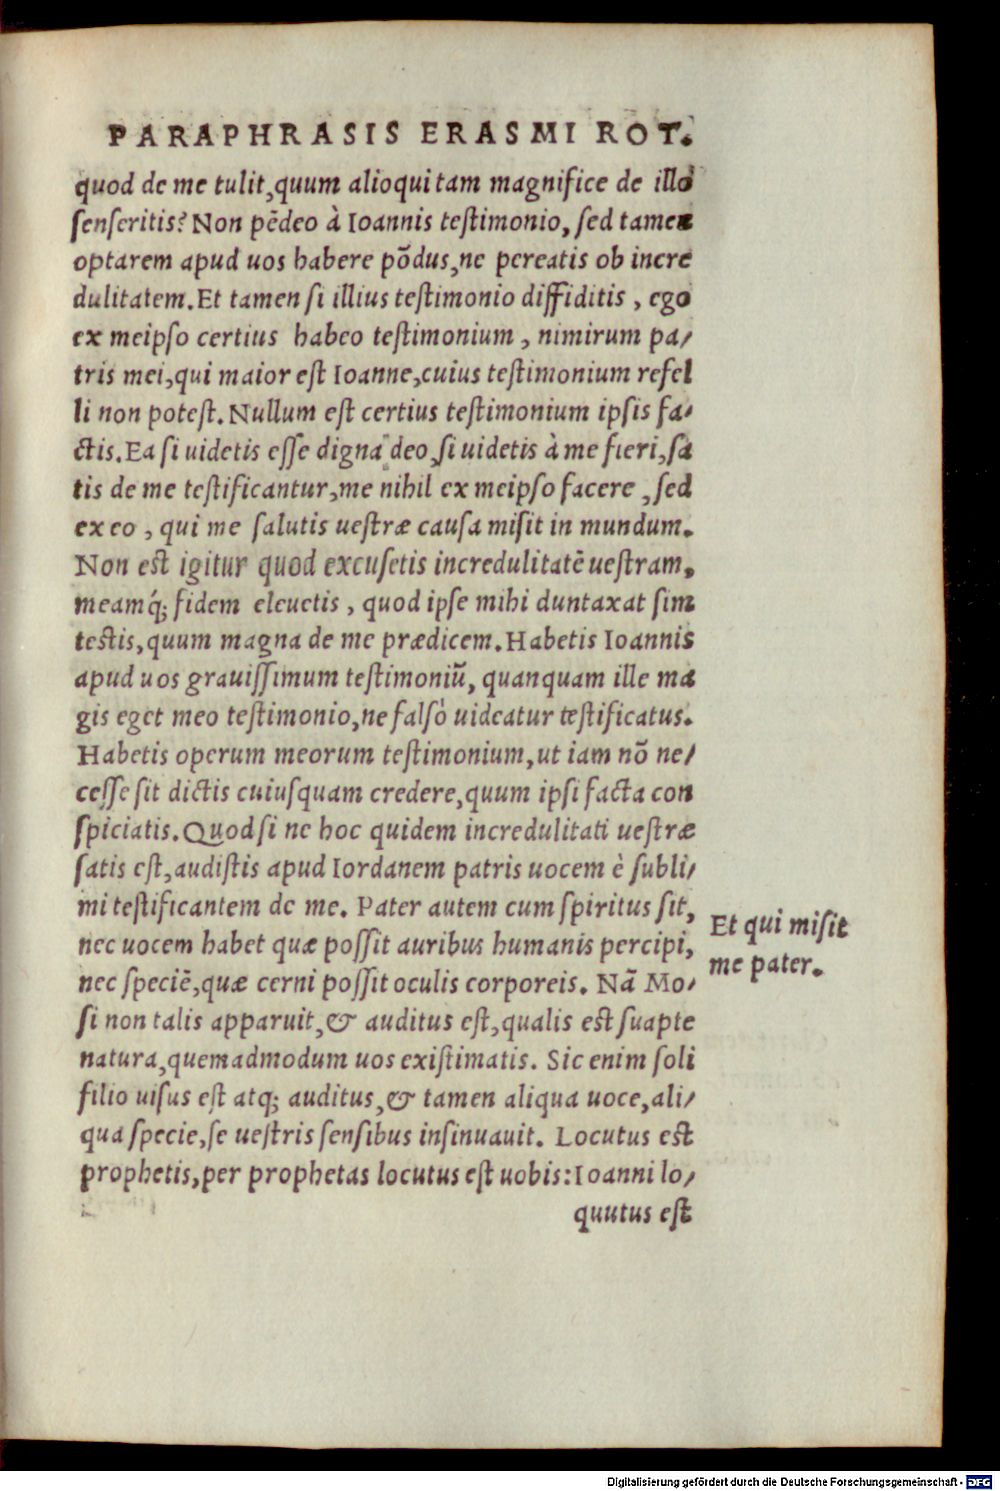 PARAPHRASIS ERASMI ROT.
quod de me tulit, quum alioqui tam magnifice de illo
senseritis? Non pẽdeo à Ioannis testimonio, sed tamen
optarem apud uos habere põdus, ne pereatis ob incre
dulitatem. Et tamen si illius testimonio diffiditis, ego
ex meipso certius habeo testimonium, nimirum pa/
tris mei, qui maior est Ioanne, cuius testimonium refel
li non potest. Nullum est certius testimonium ipsis fa/
ctis. Ea si uidetis esse digna deo, si uidetis à me fieri, sa
tis de me testificantur, me nihil ex meipso facere, sed
ex eo, qui me salutis uestræ causa misit in mundum.
Non est igitur quod excusetis incredulitatẽ uestram,
meamq́; fidem eleuetis, quod ipse mihi duntaxat sim
testis, quum magna de me prædicem. Habetis Ioannis
apud uos grauissimum testimoniũ, quanquam ille ma
gis eget meo testimonio, ne falsò uideatur testificatus.
Habetis operum meorum testimonium, ut iam nõ ne/
cesse sit dictis cuiusquam credere, quum ipsi facta con
spiciatis. Quod si ne hoc quidem incredulitati uestræ
satis est, audistis apud Iordanem patris uocem è subli/
mi testificantem de me. Pater autem cum spiritus sit,
nec uocem habet quæ possit auribus humanis percipi,
nec speciẽ, quæ cerni possit oculis corporeis. Nã Mo/
si non talis apparuit, & auditus est, qualis est suapte
natura, quemadmodum uos existimatis. Sic enim soli
filio uisus est atq; auditus, & tamen aliqua uoce, ali/
qua specie, se uestris sensibus insinuauit. Locutus est
prophetis, per prophetas locutus est uobis: Ioanni lo/
quutus est
Et qui misit
me pater.
Digitalisierung gefördert durch die Deutsche Forschungsgemeinschaft - DFG